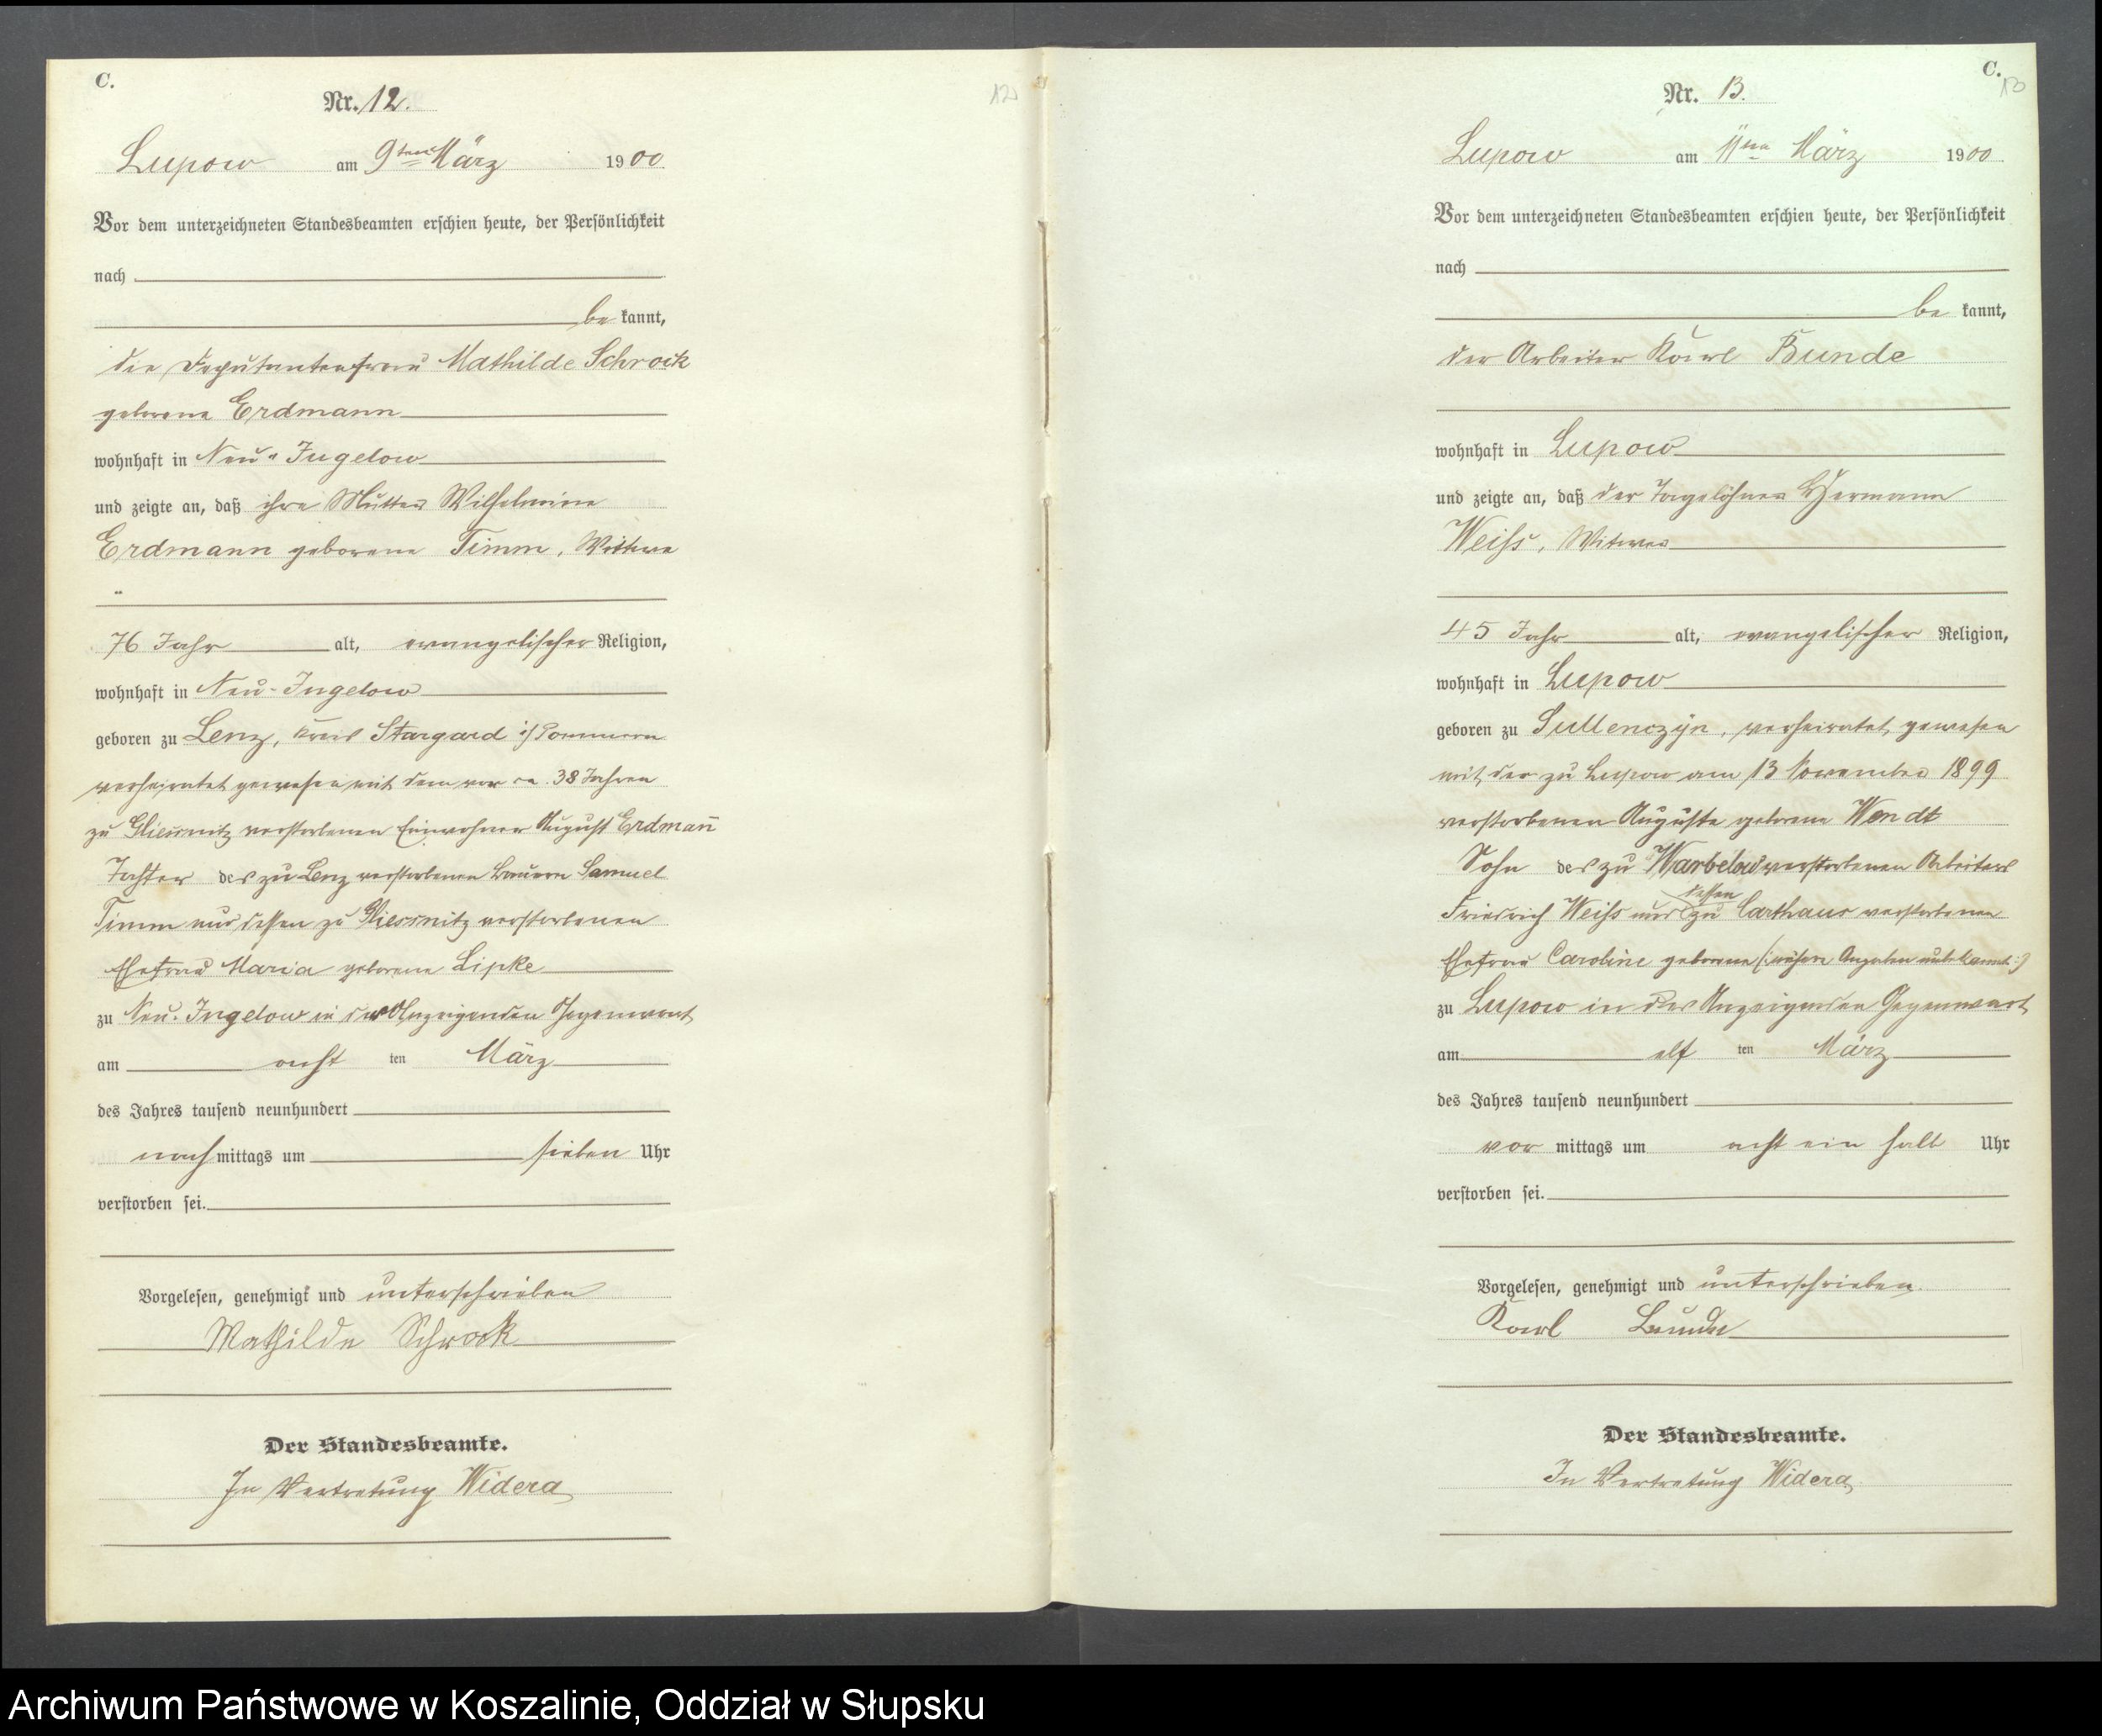 C.
Nr. 12.
Lupow am 9ten März 1900
Vor dem unterzeichneten Standesbeamten erschien heute, der Persönlichkeit
nach
be kannt,
die Deputantenfrau Mathilde Schrock
geborene Erdmann
wohnhaft in Neu-Jugelow
und zeigte an, daß ihre Mutter Wilhelmine
Erdmann geborene Timm, Wittwe
76 Jahr alt, evangelischer Religion,
wohnhaft in Neu-Jugelow
geboren zu Lenz, Kreis Stargard i/ Pommern
verheiratet gewesen mit dem vor ca. 38 Jahren
zu verstorbenen Einwohner August Erdmann
Tochter des zu Lenz verstorbenen Bauern Samuel
Timm und dessen zu verstorbenen
Ehefrau Maria geborene Lipke
zu Neu-Jugelow in der Anzeigenden Gegenwart
am acht ten März
des Jahres tausend neunhundert
nach mittags um sieben Uhr
verstorben sei.
Vorgelesen, genehmigt und unterschrieben
Mathilde Schrock
Der Standesbeamte.
In Vertretung Widera
12
C.
13
Nr. 13.
Lupow am 11ten März 1900
Vor dem unterzeichneten Standesbeamten erschien heute, der Persönlichkeit
nach
be kannt,
der Arbeiter Karl Bunde
wohnhaft in Lupow
und zeigte an, daß der Tagelöhner Hermann
Weiß, Witwer
45 Jahr alt, evangelischer Religion,
wohnhaft in Lupow
geboren zu Sullenczyn, verheiratet gewesen
mit der zu Lupow am 13 November 1899
verstorbenen Auguste geborene Wendt
Sohn des zu Warbelow verstorbenen Arbeiters
Friedrich Weiß und dessen zu Carthaus verstorbenen
Ehefrau Caroline geborene (:nähere Angaben unbekannt:)
zu Lupow in des Anzeigenden Gegenwart
am elf ten März
des Jahres tausend neunhundert
vor mittags um acht ein halb Uhr
verstorben sei.
Vorgelesen, genehmigt und unterschrieben
Karl Bunde
Der Standesbeamte.
In Vertretung Widera
Archiwum Państwowe w Koszalinie, Oddział w Słupsku